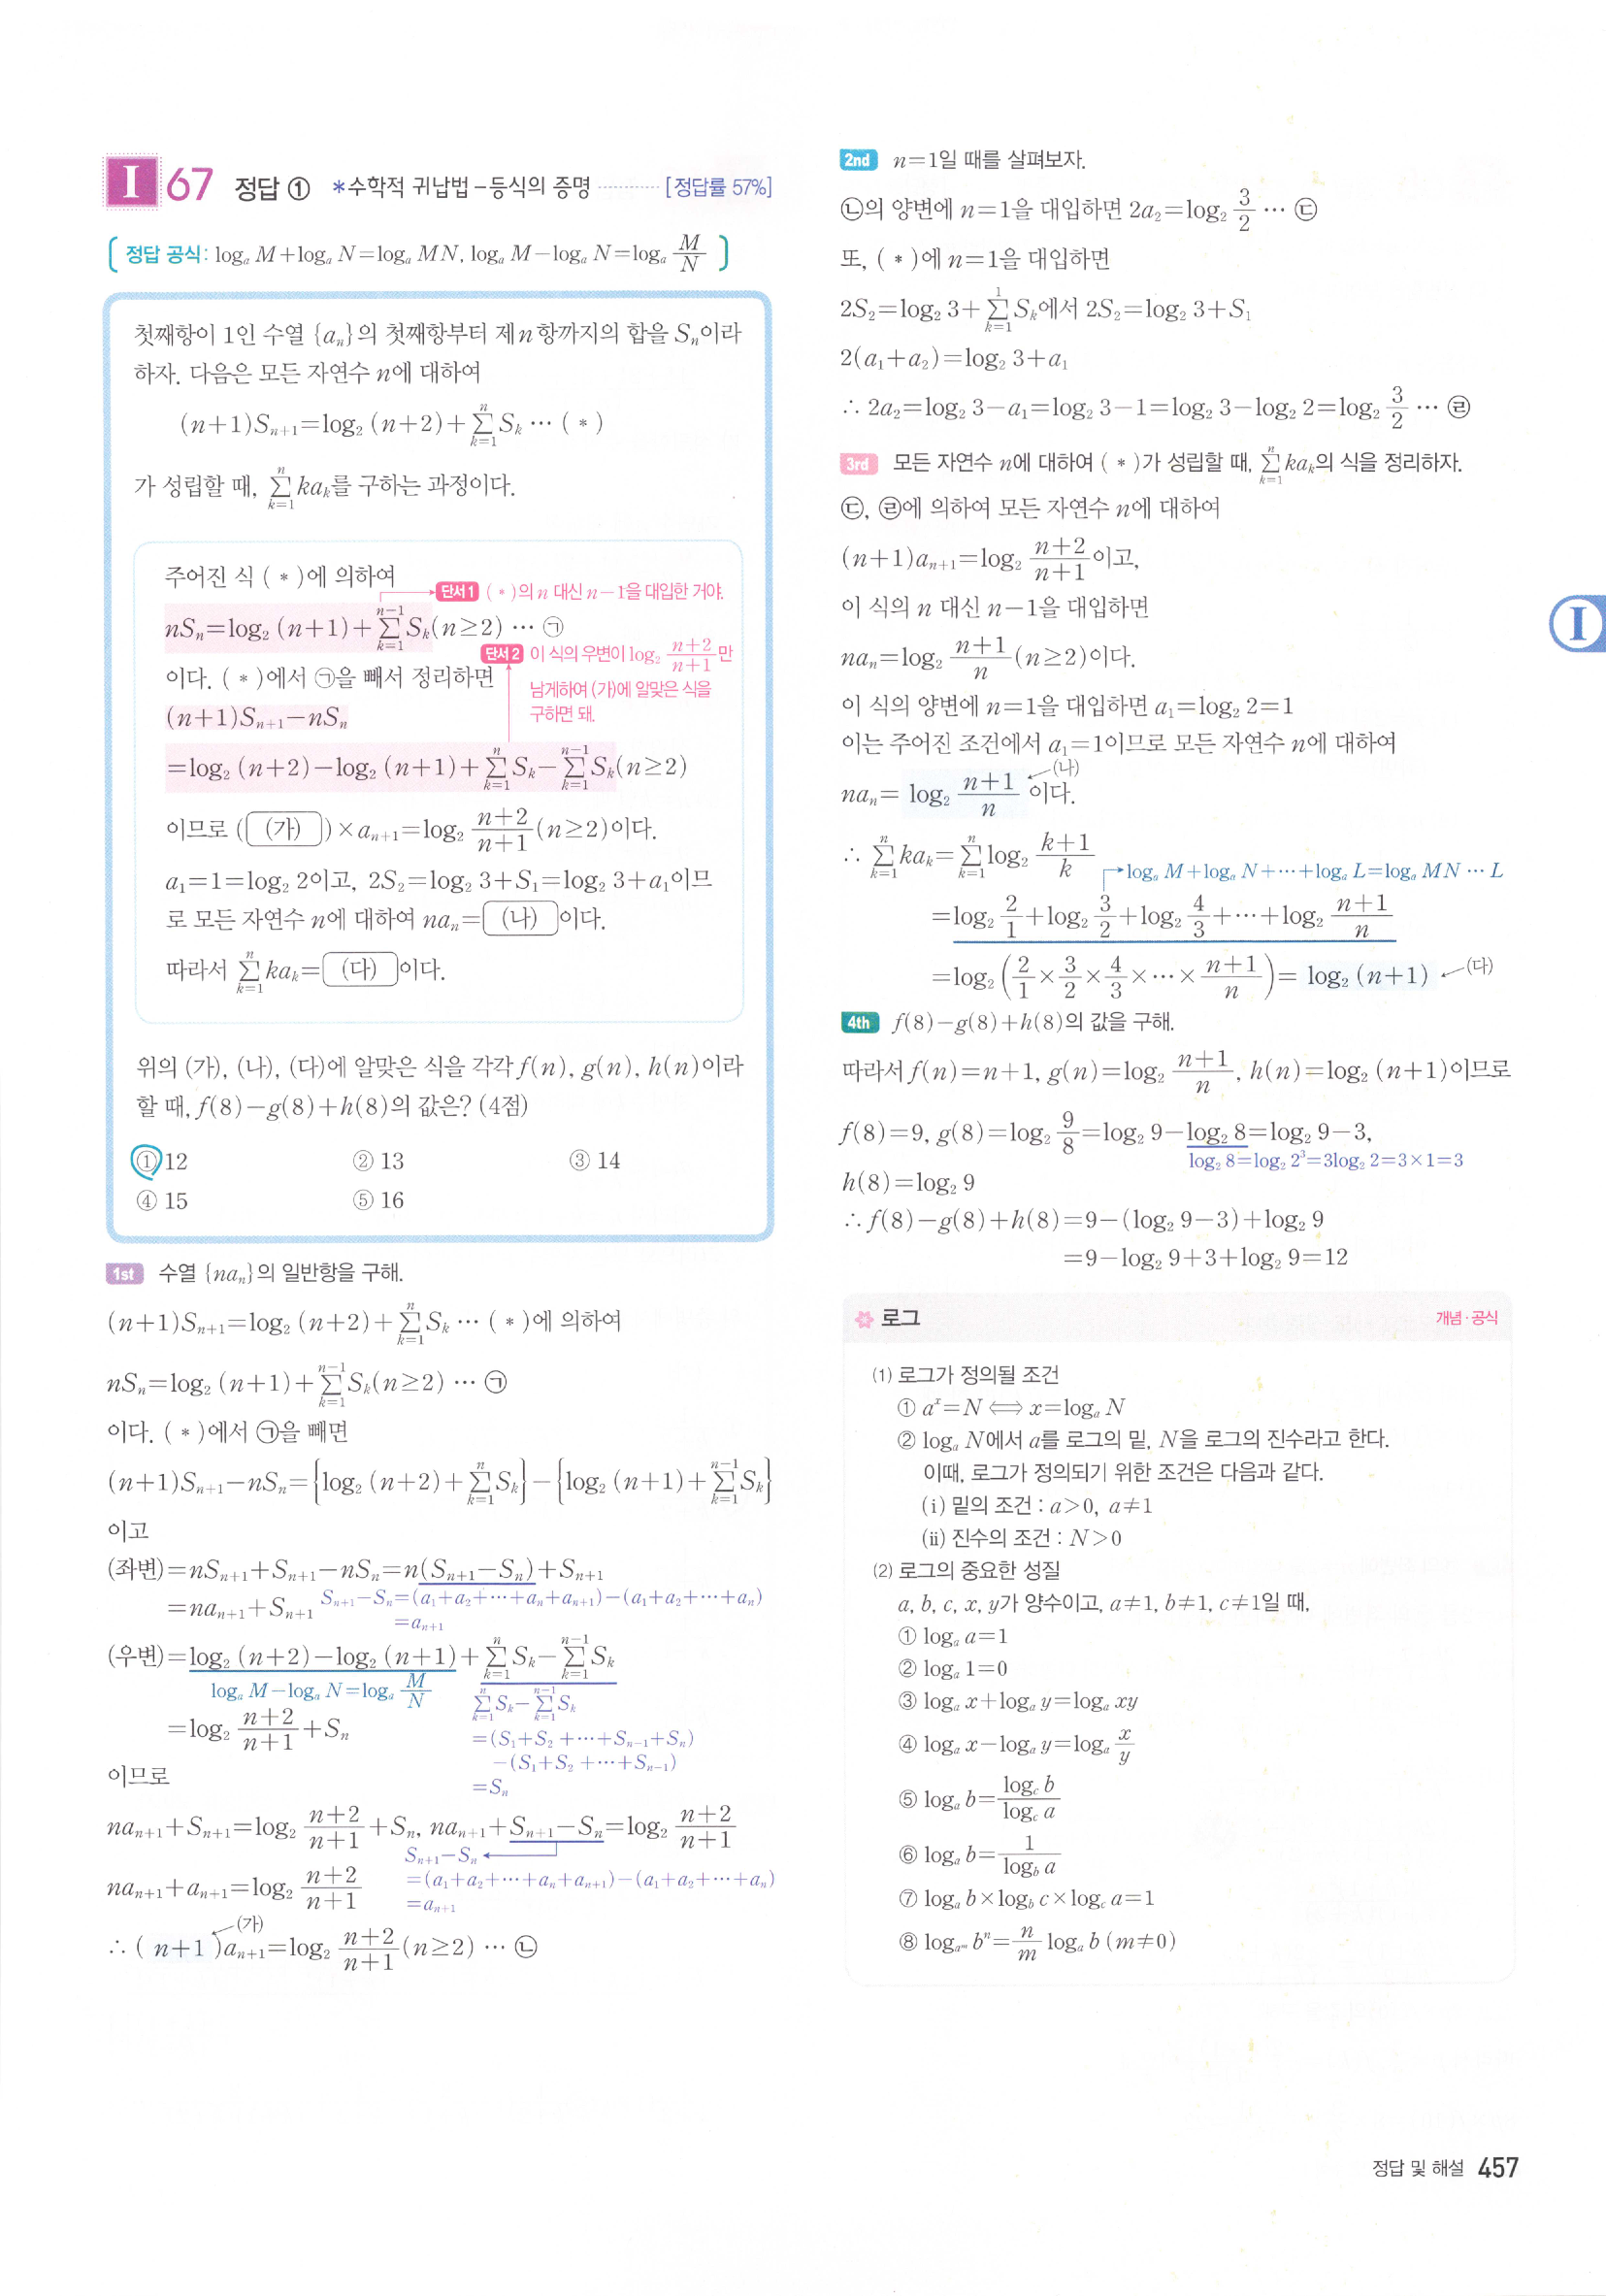 I 67 정답 ① *수학적 귀납법-등식의 증명 ·········· [정답률 57%]
( 정답 공식: logₐ M+logₐ N=logₐ MN, logₐ M−logₐ N=logₐ M/N )
첫째항이 1인 수열 {aₙ}의 첫째항부터 제n항까지의 합을 Sₙ이라
하자. 다음은 모든 자연수 n에 대하여
(n+1)Sₙ₊₁=log₂ (n+2)+∑_{k=1}^{n} Sₖ ··· ( * )
가 성립할 때, ∑_{k=1}^{n} kaₖ를 구하는 과정이다.
주어진 식 ( * )에 의하여
단서1 ( * )의 n 대신 n−1을 대입한 거야.
nSₙ=log₂ (n+1)+∑_{k=1}^{n−1} Sₖ(n≥2) ··· ㉠
단서2 이 식의 우변이 log₂ (n+2)/(n+1)만
이다. ( * )에서 ㉠을 빼서 정리하면
남게하여 (가)에 알맞은 식을
구하면 돼.
(n+1)Sₙ₊₁−nSₙ
=log₂ (n+2)−log₂ (n+1)+∑_{k=1}^{n} Sₖ−∑_{k=1}^{n−1} Sₖ(n≥2)
이므로 ( (가) )×aₙ₊₁=log₂ (n+2)/(n+1) (n≥2)이다.
a₁=1=log₂ 2이고, 2S₂=log₂ 3+S₁=log₂ 3+a₁이므
로 모든 자연수 n에 대하여 naₙ= (나) 이다.
따라서 ∑_{k=1}^{n} kaₖ= (다) 이다.
위의 (가), (나), (다)에 알맞은 식을 각각 f(n), g(n), h(n)이라
할 때, f(8)−g(8)+h(8)의 값은? (4점)
① 12 ② 13 ③ 14
④ 15 ⑤ 16
1st 수열 {naₙ}의 일반항을 구해.
(n+1)Sₙ₊₁=log₂ (n+2)+∑_{k=1}^{n} Sₖ ··· ( * )에 의하여
nSₙ=log₂ (n+1)+∑_{k=1}^{n−1} Sₖ(n≥2) ··· ㉠
이다. ( * )에서 ㉠을 빼면
(n+1)Sₙ₊₁−nSₙ={log₂ (n+2)+∑_{k=1}^{n} Sₖ}−{log₂ (n+1)+∑_{k=1}^{n−1} Sₖ}
이고
(좌변)=nSₙ₊₁+Sₙ₊₁−nSₙ=n(Sₙ₊₁−Sₙ)+Sₙ₊₁
=naₙ₊₁+Sₙ₊₁ Sₙ₊₁−Sₙ=(a₁+a₂+···+aₙ+aₙ₊₁)−(a₁+a₂+···+aₙ)
=aₙ₊₁
(우변)=log₂ (n+2)−log₂ (n+1)+∑_{k=1}^{n} Sₖ−∑_{k=1}^{n−1} Sₖ
logₐ M−logₐ N=logₐ M/N ∑_{k=1}^{n} Sₖ−∑_{k=1}^{n−1} Sₖ
=log₂ (n+2)/(n+1)+Sₙ =(S₁+S₂+···+Sₙ₋₁+Sₙ)
−(S₁+S₂+···+Sₙ₋₁)
이므로 =Sₙ
naₙ₊₁+Sₙ₊₁=log₂ (n+2)/(n+1)+Sₙ, naₙ₊₁+Sₙ₊₁−Sₙ=log₂ (n+2)/(n+1)
Sₙ₊₁−Sₙ
naₙ₊₁+aₙ₊₁=log₂ (n+2)/(n+1) =(a₁+a₂+···+aₙ+aₙ₊₁)−(a₁+a₂+···+aₙ)
=aₙ₊₁
(가)
∴ ( n+1 )aₙ₊₁=log₂ (n+2)/(n+1) (n≥2) ··· ㉡
2nd n=1일 때를 살펴보자.
㉡의 양변에 n=1을 대입하면 2a₂=log₂ 3/2 ··· ㉢
또, ( * )에 n=1을 대입하면
2S₂=log₂ 3+∑_{k=1}^{1} Sₖ에서 2S₂=log₂ 3+S₁
2(a₁+a₂)=log₂ 3+a₁
∴ 2a₂=log₂ 3−a₁=log₂ 3−1=log₂ 3−log₂ 2=log₂ 3/2 ··· ㉣
3rd 모든 자연수 n에 대하여 ( * )가 성립할 때, ∑_{k=1}^{n} kaₖ의 식을 정리하자.
㉢, ㉣에 의하여 모든 자연수 n에 대하여
(n+1)aₙ₊₁=log₂ (n+2)/(n+1)이고,
이 식의 n 대신 n−1을 대입하면
naₙ=log₂ (n+1)/n (n≥2)이다.
이 식의 양변에 n=1을 대입하면 a₁=log₂ 2=1
이는 주어진 조건에서 a₁=1이므로 모든 자연수 n에 대하여
naₙ= log₂ (n+1)/n 이다. (나)
∴ ∑_{k=1}^{n} kaₖ=∑_{k=1}^{n} log₂ (k+1)/k
logₐ M+logₐ N+···+logₐ L=logₐ MN ··· L
=log₂ 2/1+log₂ 3/2+log₂ 4/3+···+log₂ (n+1)/n
=log₂ (2/1×3/2×4/3×···×(n+1)/n)= log₂ (n+1) (다)
4th f(8)−g(8)+h(8)의 값을 구해.
따라서 f(n)=n+1, g(n)=log₂ (n+1)/n, h(n)=log₂ (n+1)이므로
f(8)=9, g(8)=log₂ 9/8=log₂ 9−log₂ 8=log₂ 9−3,
log₂ 8=log₂ 2³=3log₂ 2=3×1=3
h(8)=log₂ 9
∴ f(8)−g(8)+h(8)=9−(log₂ 9−3)+log₂ 9
=9−log₂ 9+3+log₂ 9=12
로그 개념·공식
(1) 로그가 정의될 조건
① aˣ=N ⟺ x=logₐ N
② logₐ N에서 a를 로그의 밑, N을 로그의 진수라고 한다.
이때, 로그가 정의되기 위한 조건은 다음과 같다.
(i) 밑의 조건 : a>0, a≠1
(ii) 진수의 조건 : N>0
(2) 로그의 중요한 성질
a, b, c, x, y가 양수이고, a≠1, b≠1, c≠1일 때,
① logₐ a=1
② logₐ 1=0
③ logₐ x+logₐ y=logₐ xy
④ logₐ x−logₐ y=logₐ x/y
⑤ logₐ b=log_c b/log_c a
⑥ logₐ b=1/log_b a
⑦ logₐ b×log_b c×log_c a=1
⑧ log_{aᵐ} bⁿ=n/m logₐ b (m≠0)
I
정답 및 해설 457